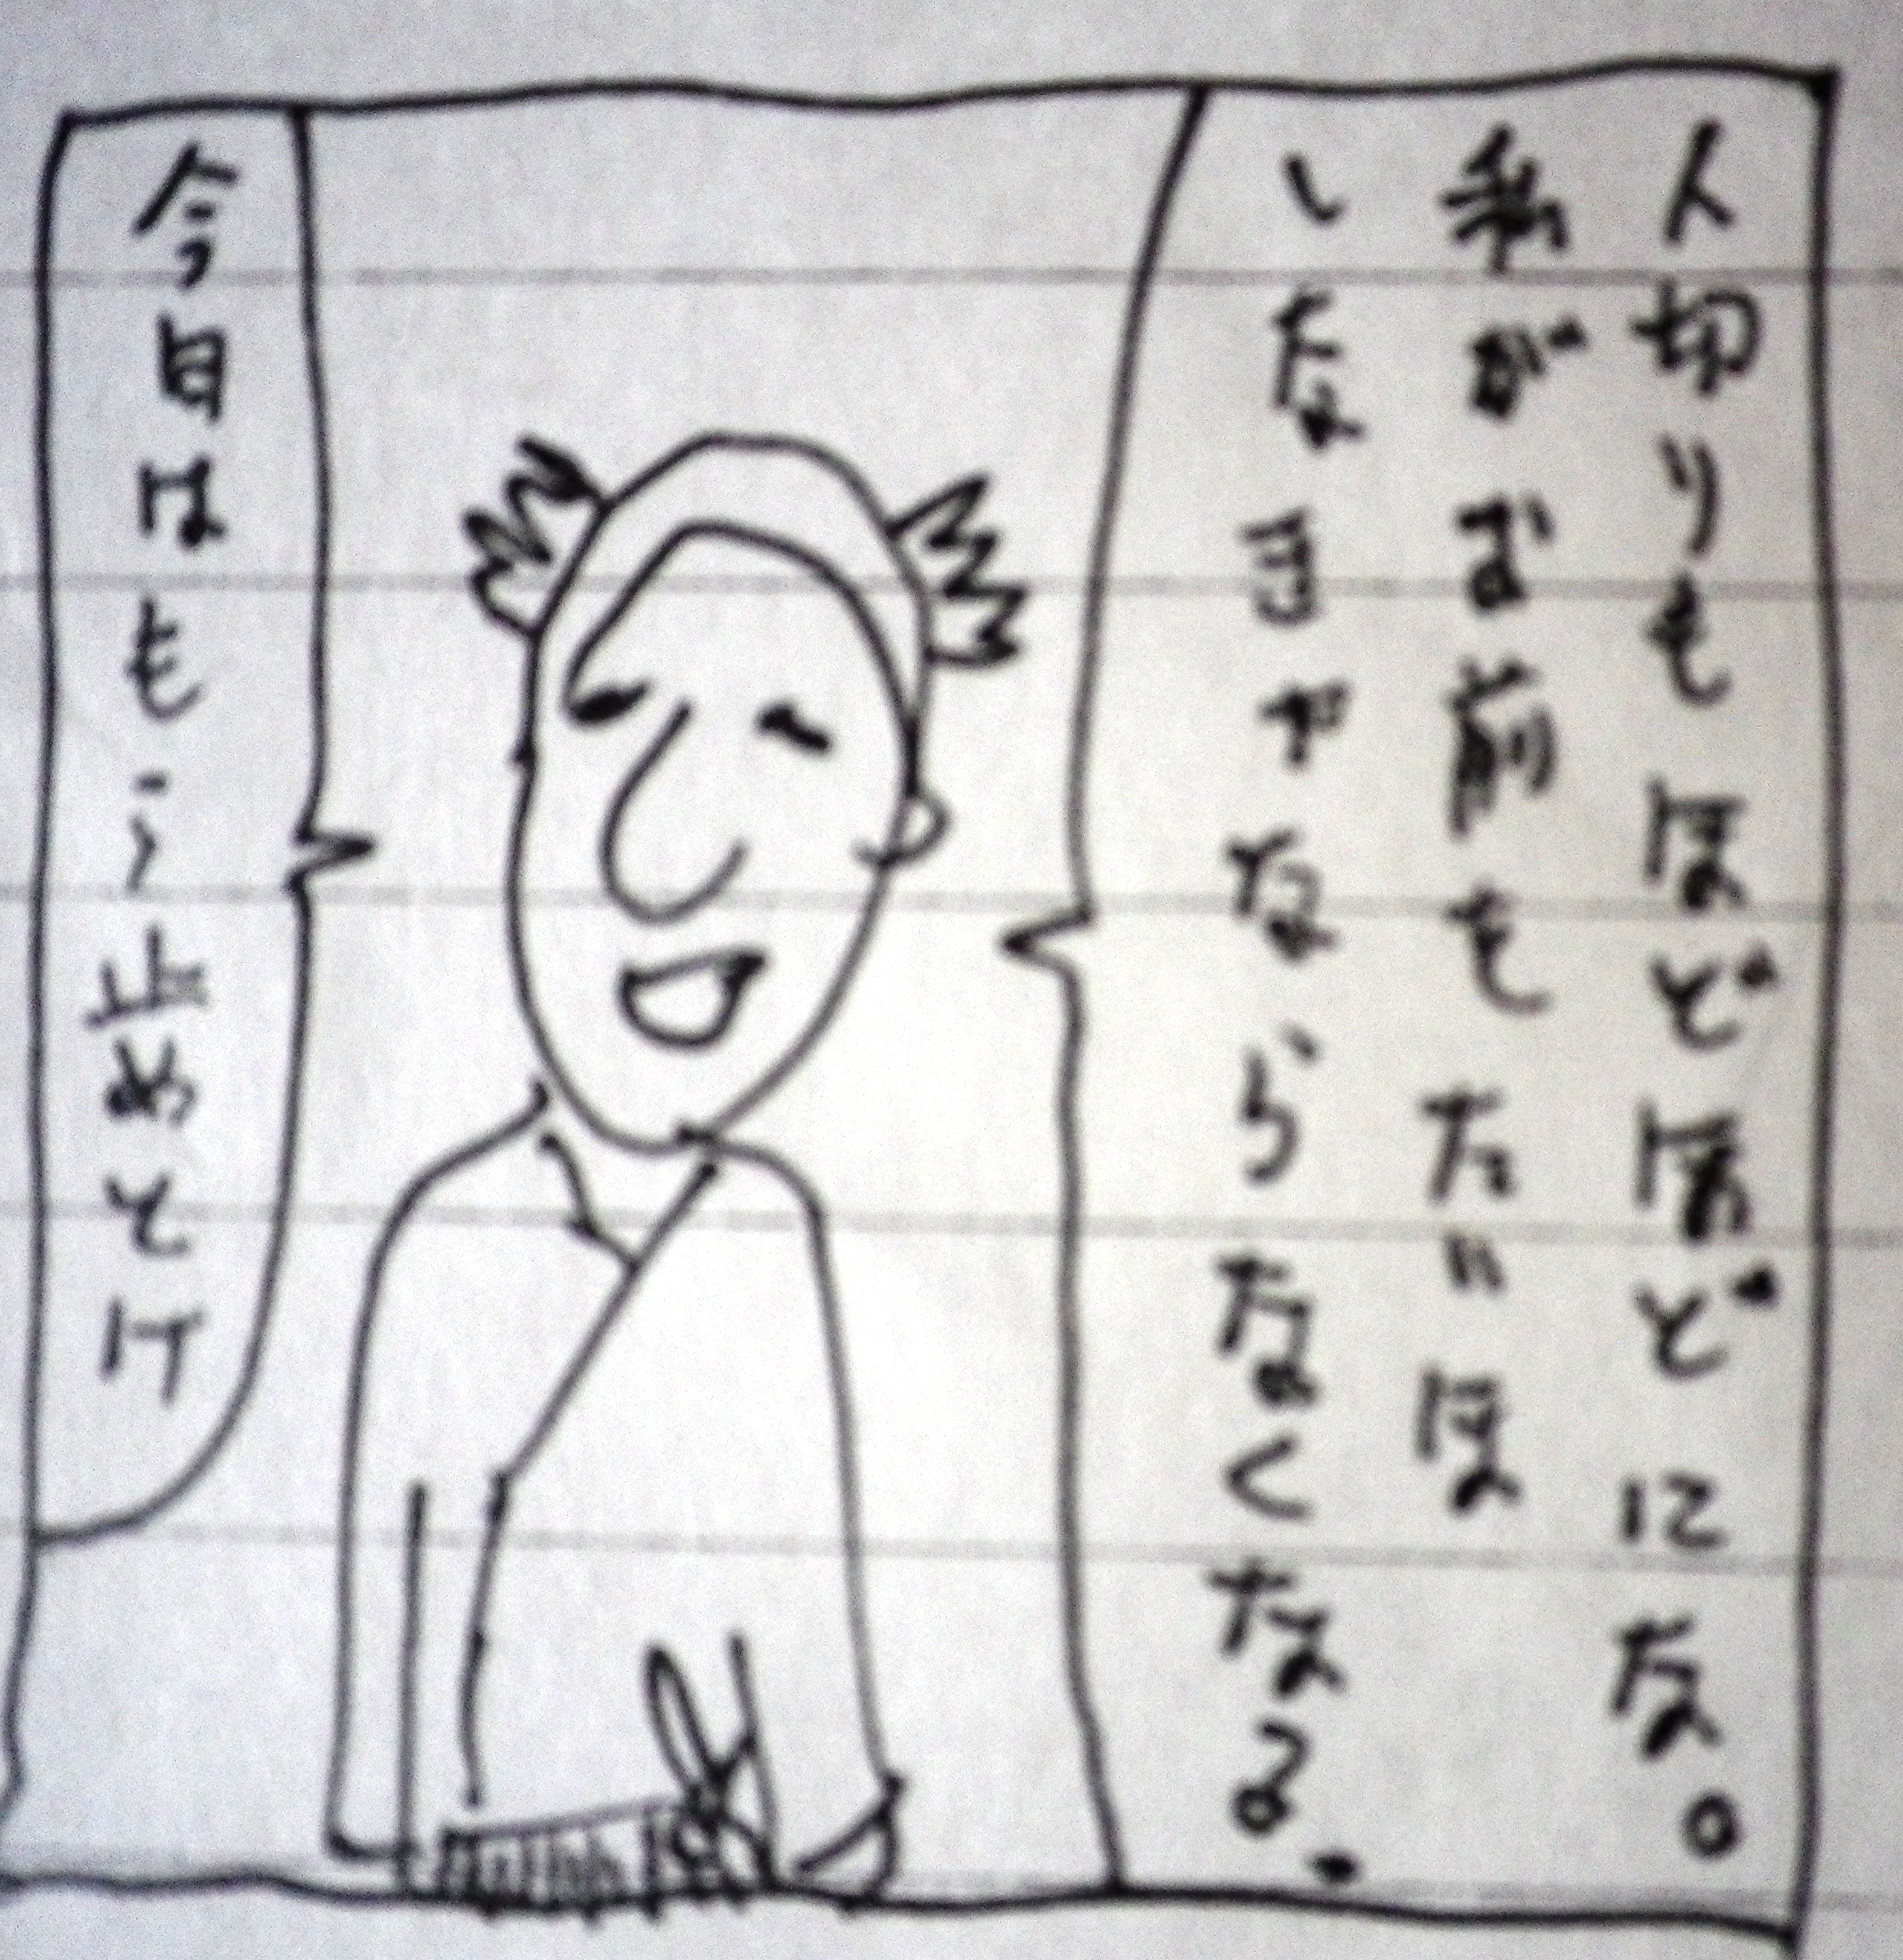 人切りもほどほどにな。
私がお前をたいほ
しなきゃならなくなる.
今日はもう止めとけ